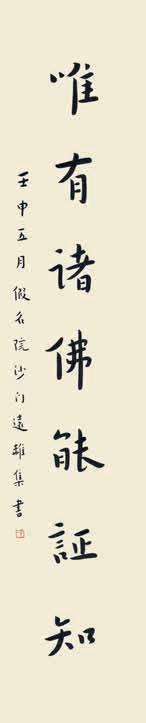 唯有诸佛能証知
壬申五月假名院沙门遠雜集書